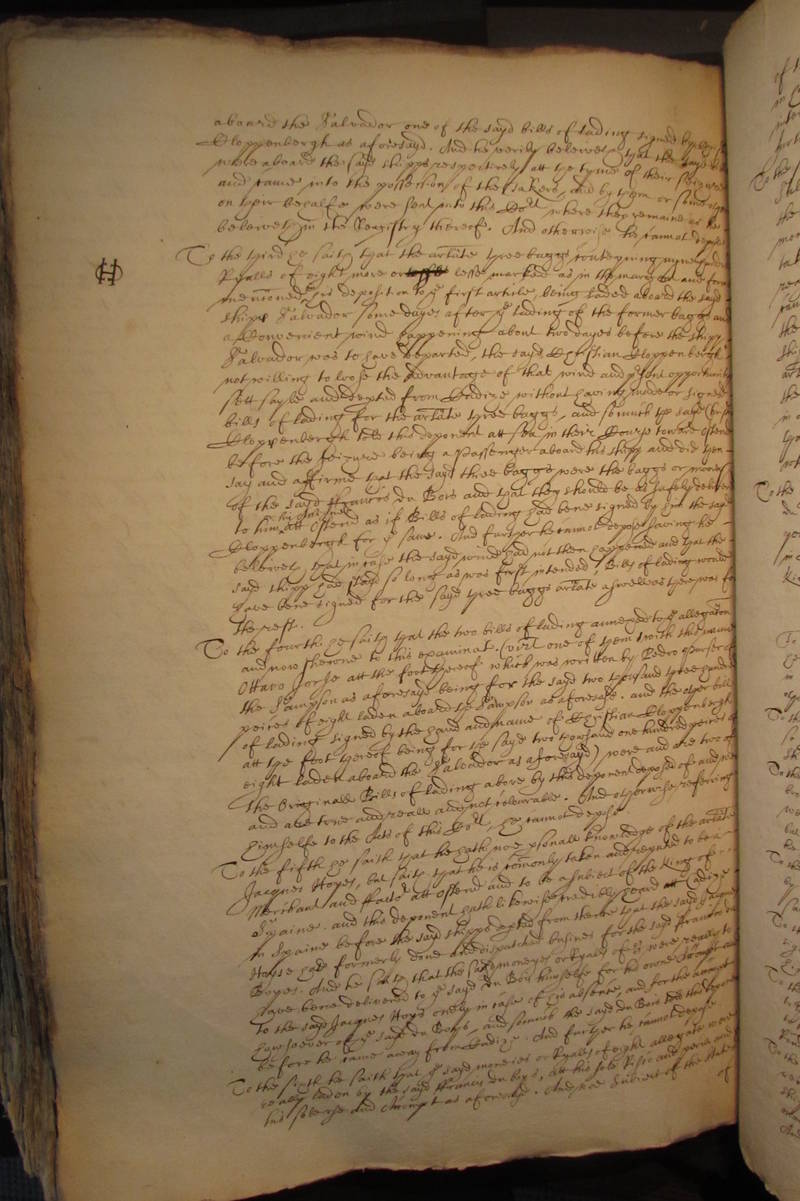 aboard the Salvador one of the sayd bills of lading signed by
Cloppenbergh as aforesayd. And he verily beleeveth that the sayd
were aboard the said shipps respectively att the tyme of their seizure
and came into the possession of the takers, and by them or some
on their behalfe were sent into this Court where they remaine as he
beleeveth in the Registry thereof. And otherwise he cannot depose
To the third he saith that the arlate three baggs conteyning nyne
Ryalls of eight more or lesse marked as in the margent and
mencioned in his deposition to ye first article, being laded aboard the sayd
shipp Salvador some dayes after ye lading of the former baggs and
a Convenient wind happening about two dayes before the shipp
Salvador was to have departed, the sayd Christian Cloppenbergh
not willing to loose the advantage of that wind and opportunity
sett sayle and departed from Cadize without having made or signed
bills of lading for the arlate three baggs, and somuch the sayd
Cloppenbergh told this deponent att sea in their Course towards Ostend
before the seizure being a passenger aboard his shipp and did then
say and affirme that the sayd three baggs were the baggs or moneys
of the sayd Francois du Bois and that they should be as safely delivered
to him att Ostend as if Bills of lading had bene signed by him the sayd
Cloppenbergh for ye same. And further he cannot depose saving he
beleeveth, that in case the sayd wind had not then happened and that the
said shipp had stayd so long as was first intended Bills of lading would
have bene signed for the sayd three baggs arlate aswell as there was for
the rest.
To the fourth he saith that the two bills of lading annexed to ye allegation
and now showne to this examinat (vizt one of them with the name
Ottavo Corso att the foot thereof which was written by Pedro purser of
the Sampson as aforesayd being for the said two thousand three hundred
peices of eight laden aboard the Sampson as aforesayd. and the other bill
of lading signed by the hand and name of Christian Cloppenbergh
att the foot thereof being for the sayd two thousand one hundred peices of
eight laden aboard the Salvador as aforesayd) were and are two of
the Originall Bills of lading above by this deponent deposed of and were
and are true and reall and not colourable. And otherwise referring
himselfe to the Acts of this Court he cannot depose
To the fifth he saith that he hath noe personall knowledge of the arlate
Jacques Hoyes, but saith that he is comonly taken and reputed to be a
Merchant and factor att Ostend and to be a subject of the King of
Spaine. and this deponent hath likewise credibly heard att Cadize
in Spaine before the sayd shipps depted from thence that the said Jacques
Hoyse had formerly done and dispatched busines for the said Francois du
Boyes. And he saith that the sayd moneyes or Ryalls of 8 were really to
have bene delivered to ye sayd du Bois himselfe for his owne Compt and
to the sayd Jacques Hoys onely in case of his absence, and for the account
howsoever of ye sayd du Boys, and somuch the sayd du Bois told this deponent
before he came away from Cadize. And further he cannot depose
To the sixth he saith that ye sayd moneies or Ryalls of eight allegate were
really laden by the sayd Francis du boys, att his sole Risico and perill and
his sole use and Accompt as aforesayd. And noe Subject of the States
of